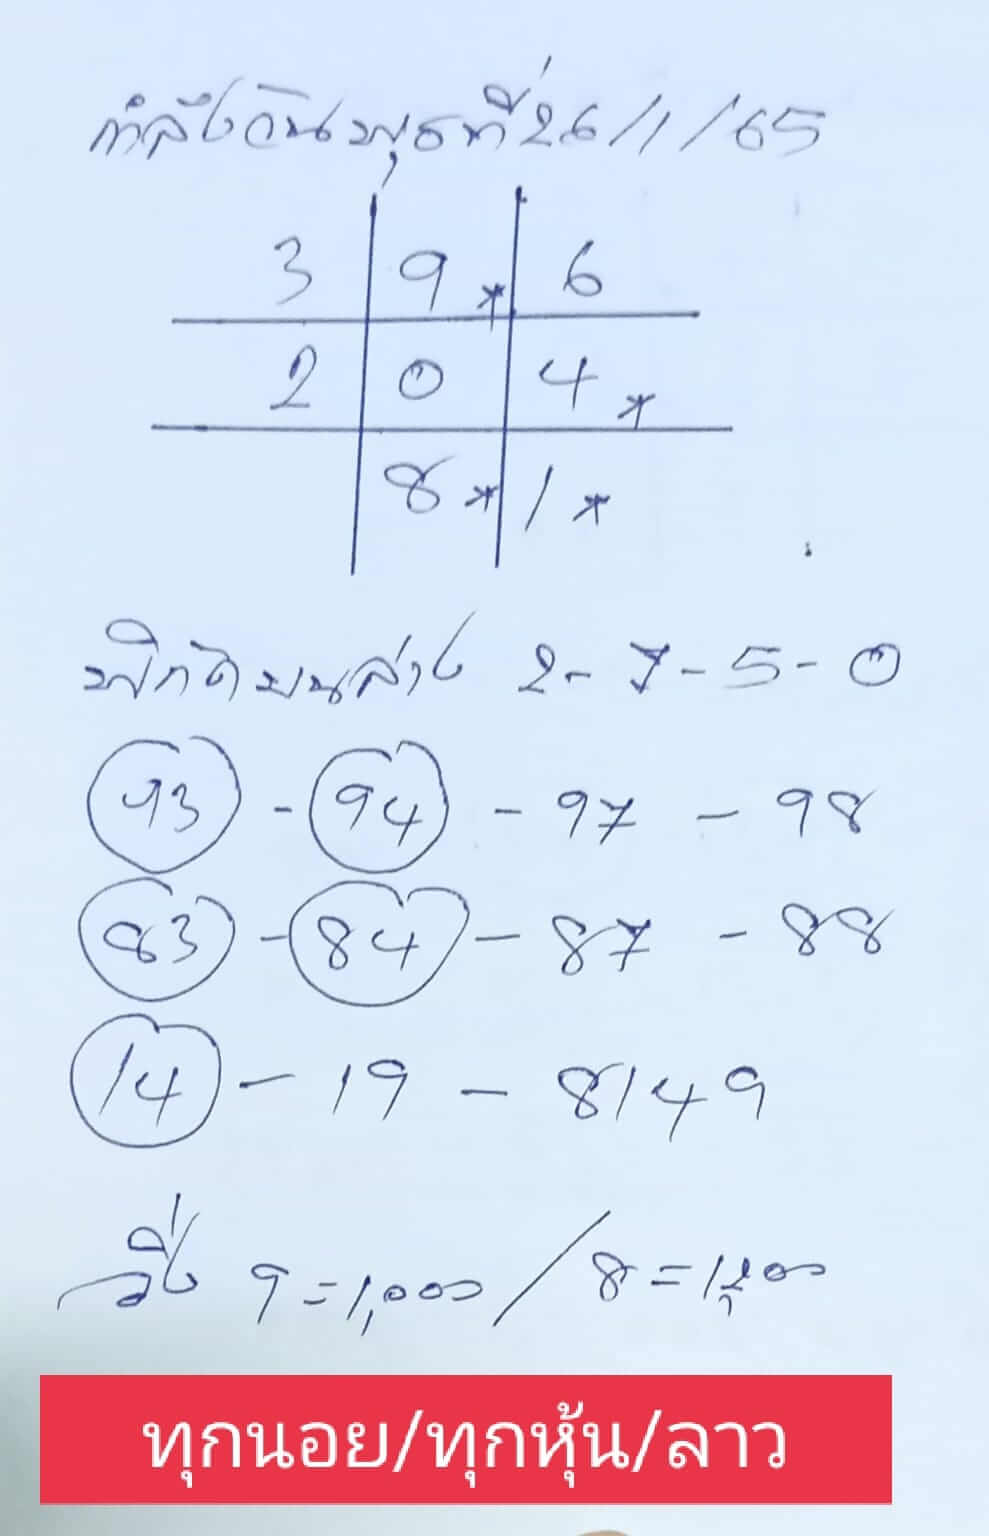 กำลังวันพุธที่ 26/1/65
3 9* 6
2 0 4*
8* 1*
พิกัดบนล่าง 2-7-5-0
93 - 94 - 97 - 98
83 - 84 - 87 - 88
14 - 19 - 8149
วิ่ง 9 = 1,000 / 8 = 1,200
ทุกนอย/ทุกหุ้น/ลาว